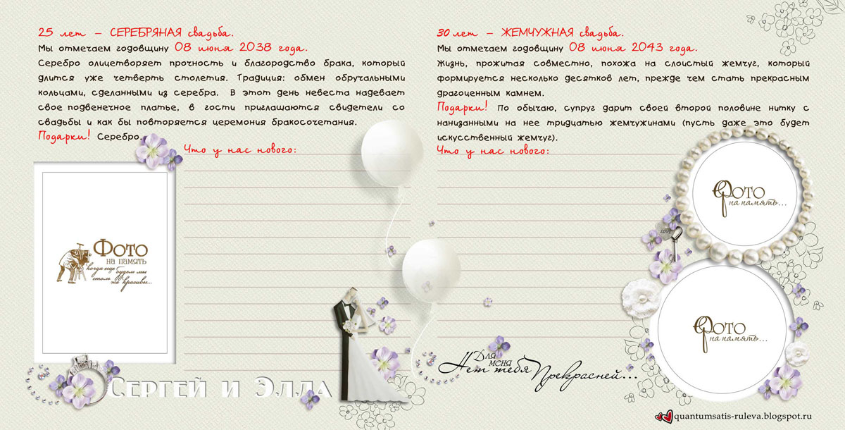 25 лет – СЕРЕБРЯНАЯ свадьба.
Мы отмечаем годовщину 08 июня 2038 года.
Серебро олицетворяет прочность и благородство брака, который
длится уже четверть столетия. Традиция: обмен обручальными
кольцами, сделанными из серебра. В этот день невеста надевает
свое подвенечное платье, в гости приглашаются свидетели со
свадьбы и как бы повторяется церемония бракосочетания.
Подарки! Серебро.
Что у нас нового:
Фото
на память
когда еще будем мы
такими же красивы...
Сергей и Элла
30 лет – ЖЕМЧУЖНАЯ свадьба.
Мы отмечаем годовщину 08 июня 2043 года.
Жизнь, прожитая совместно, похожа на слоистый жемчуг, который
формируется несколько десятков лет, прежде чем стать прекрасным
драгоценным камнем.
Подарки! По обычаю, супруг дарит своей второй половине нитку с
нанизанными на нее тридцатью жемчужинами (пусть даже это будет
искусственный жемчуг).
Что у нас нового:
Фото
на память...
Фото
на память...
Для
меня
Нет тебя Прекрасней...
quantumsatis-ruleva.blogspot.ru